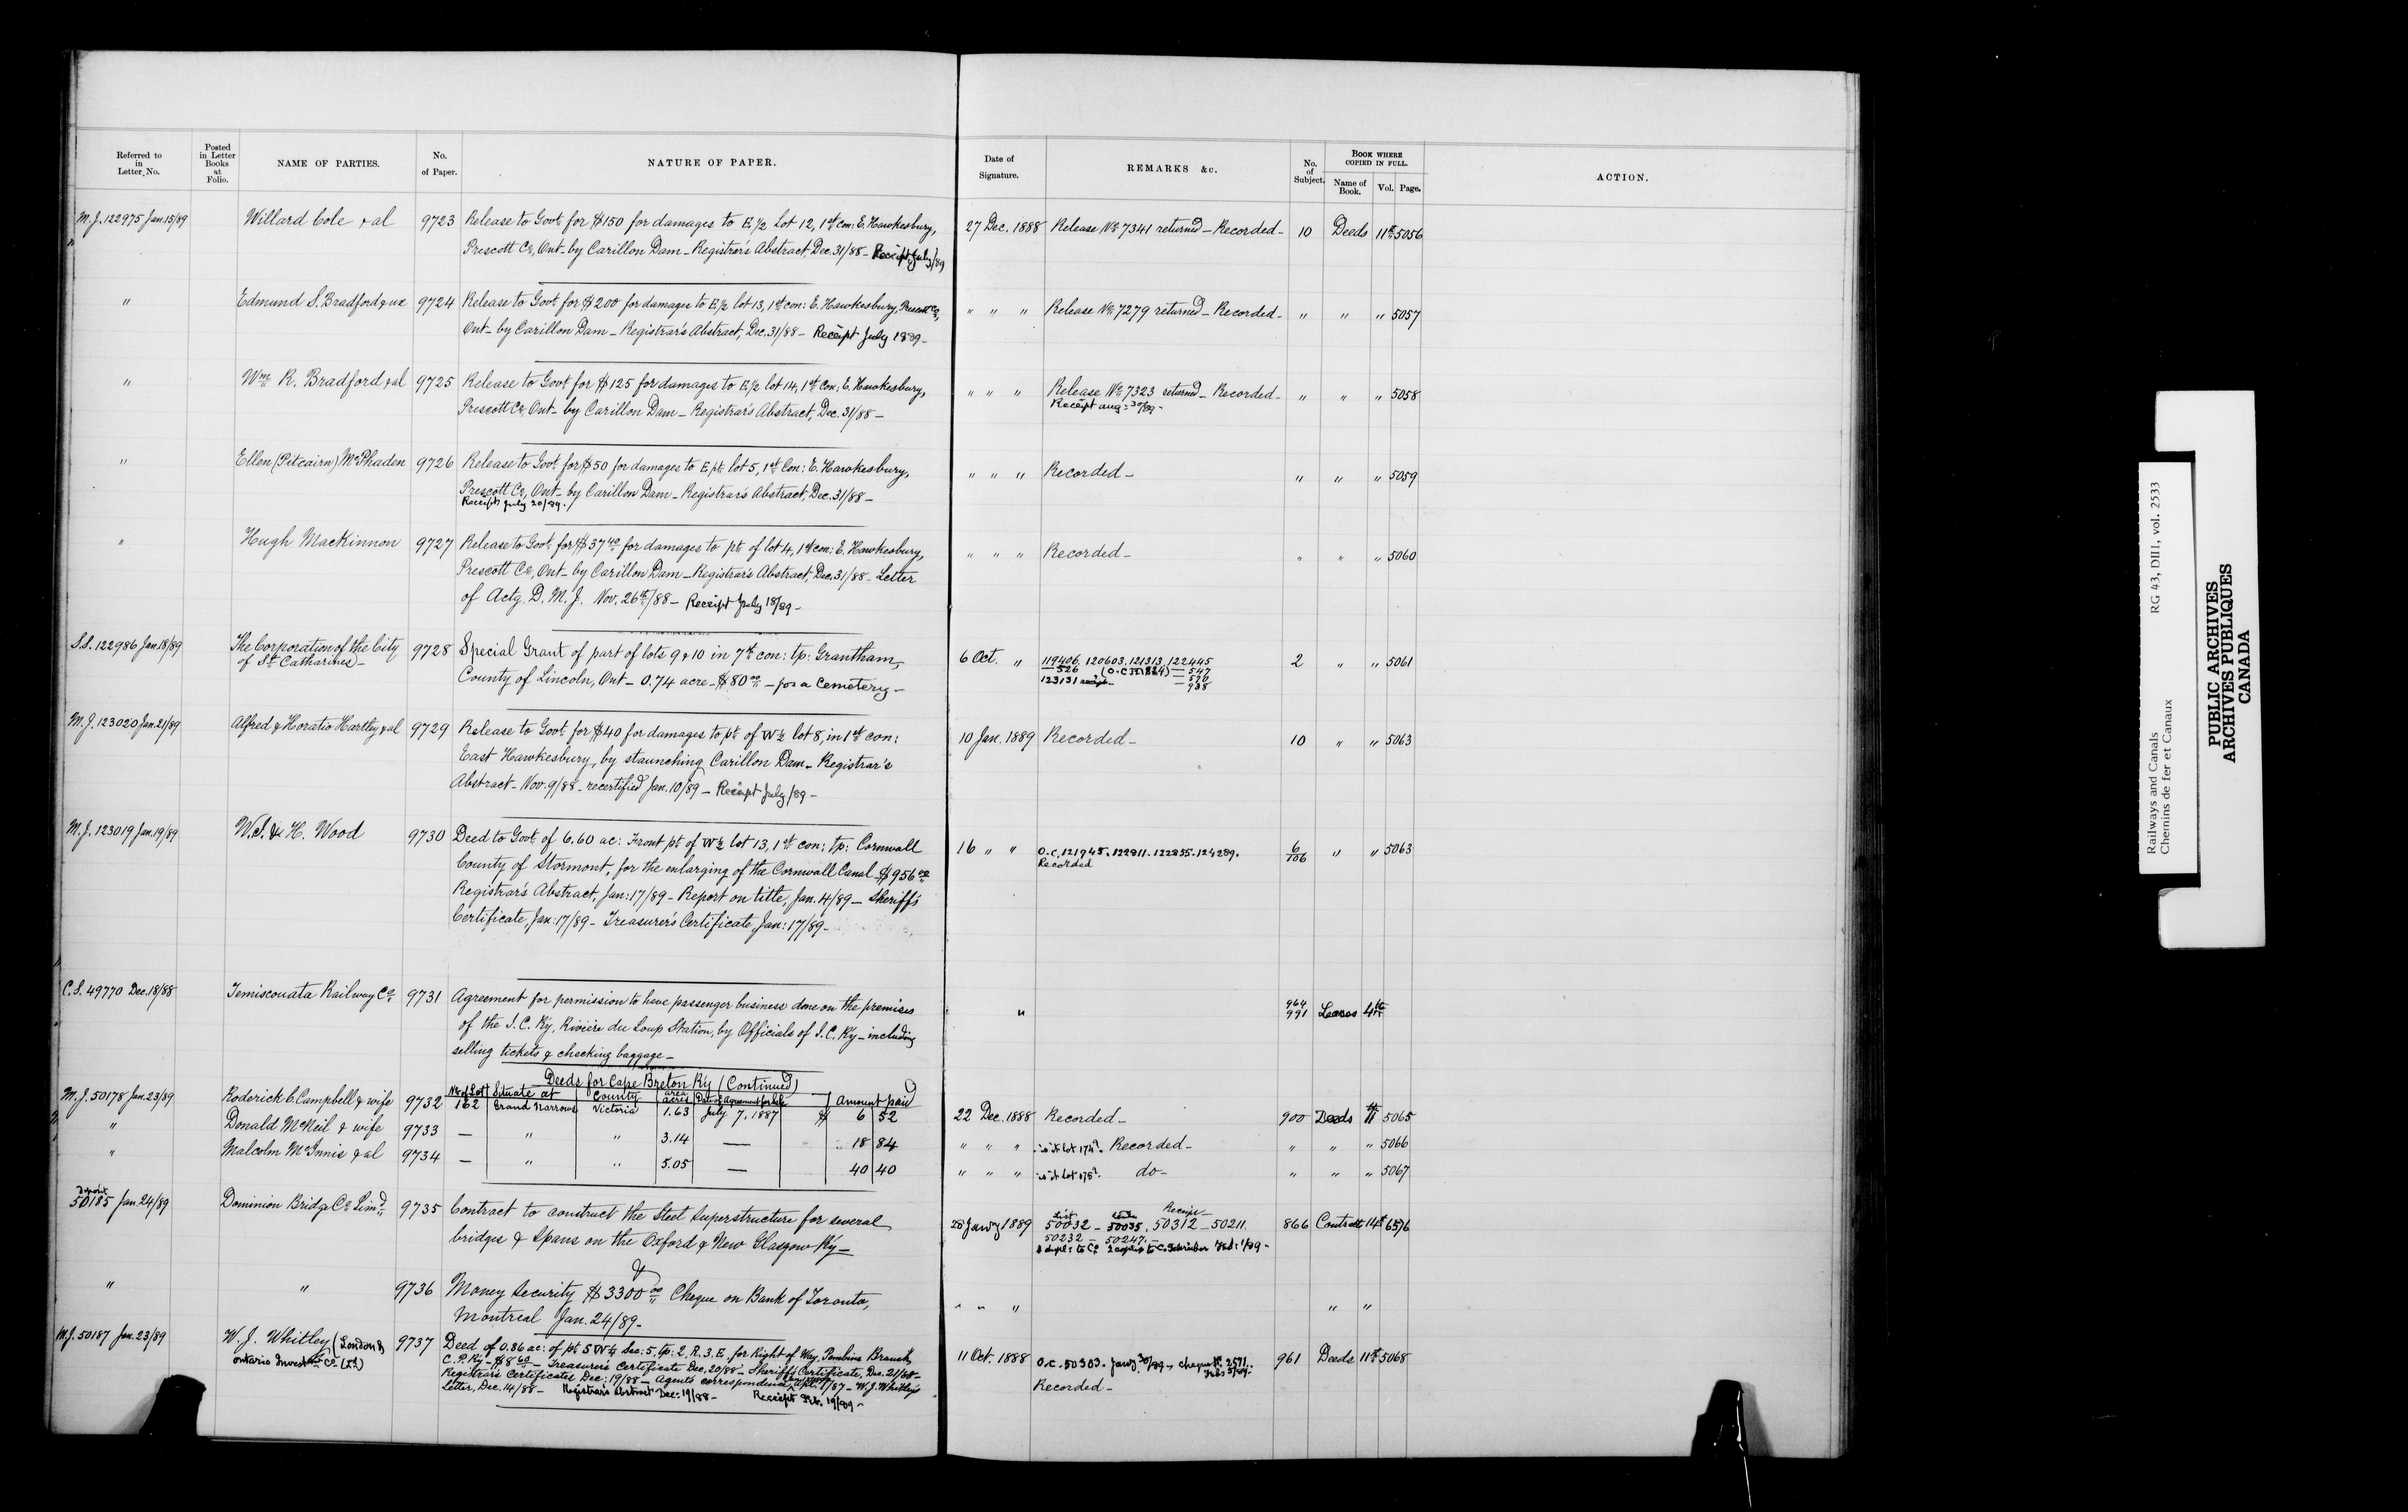 Referred to in Letter No.
Posted in Letter Books at Folio.
NAME OF PARTIES.
No. of Paper.
NATURE OF PAPER.
Date of Signature.
REMARKS &c.
No. of Subject.
BOOK WHERE COPIED IN FULL.
Name of Book. Vol. Page.
ACTION.
M.J. 122975 Jan. 15/89 Willard Cole & al 9723 Release to Govt. for $150 for damages to E. 1/2 Lot 12, 1st con: E. Hawkesbury, 27 Dec. 1888 Release No. 7341 returned - Recorded - 10 Deeds 11th 5056
Prescott Co., Ont - by Carillon Dam - Registrar's Abstract, Dec. 31/88 - Receipt July/89
" Edmund S. Bradford & ux 9724 Release to Govt. for $200 for damages to E. 1/2 lot 13, 1st con: E. Hawkesbury, Prescott Co., " " " Release No. 7279 returned - Recorded - " " " 5057
Ont - by Carillon Dam - Registrar's Abstract, Dec. 31/88 - Receipt July 1889 -
" Wm. R. Bradford & al 9725 Release to Govt. for $125 for damages to E. 1/2 lot 14, 1st Con: E. Hawkesbury, " " " Release No. 7323 returned - Recorded - " " " 5058
Prescott Co., Ont - by Carillon Dam - Registrar's Abstract, Dec. 31/88 - Receipt Aug: 30/89 -
" Ellen (Pitcairn) McPhaden 9726 Release to Govt. for $50 for damages to E. pt. lot 5, 1st Con: E. Hawkesbury, " " " Recorded - " " " 5059
Prescott Co., Ont - by Carillon Dam - Registrar's Abstract, Dec. 31/88 -
Receipt July 20/89.
" Hugh MacKinnon 9727 Release to Govt. for $37 40 for damages to pt. of lot 4, 1st con: E. Hawkesbury, " " " Recorded - " " " 5060
Prescott Co., Ont - by Carillon Dam - Registrar's Abstract, Dec. 31/88 - Letter
of Actg. D. M. J. Nov. 26th/88 - Receipt July 18/89 -
S.S. 122986 Jan. 18/89 The Corporation of the City 9728 Special Grant of part of lots 9 & 10 in 7th con: tp: Grantham, 6 Oct. " 119406, 120603, 121313, 122445 2 " " 5061
of St. Catharines - County of Lincoln, Ont - 0.74 acre - $80 00 - for a Cemetery - 526 547
123131 576
938
M.J. 123020 Jan. 21/89 Alfred & Horatio Hartley & al 9729 Release to Govt. for $40 for damages to pt. of W 1/2 lot 8, in 1st con: 10 Jan. 1889 Recorded - 10 " " 5063
East Hawkesbury, by staunching Carillon Dam - Registrar's
Abstract - Nov. 9/88 - recertified Jan. 10/89 - Receipt July/89 -
M.J. 123019 Jan. 19/89 H. Wood 9730 Deed to Govt. of 6.60 ac: Front pt. of W 1/2 lot 13, 1st con: tp: Cornwall 16 " " O.C. 121945. 122811. 122835. 124289. 6/106 " " 5063
County of Stormont, for the enlarging of the Cornwall Canal - $956 00 Recorded
Registrar's Abstract, Jan: 17/89 - Report on title, Jan. 14/89 - Sheriff's
Certificate, Jan: 17/89 - Treasurer's Certificate, Jan: 17/89 -
C.S. 49770 Dec. 18/88 Temiscouata Railway Co. 9731 Agreement for permission to have passenger business done on the premises " 964 991 Leases 4th
of the I. C. Ry, Rivière du Loup Station, by Officials of I. C. Ry - including
selling tickets & checking baggage -
Deeds for Cape Breton Ry (Continued)
No. of Lot Situate at County area acres Date of agreement for sale Amount paid
M.J. 50178 Jan. 23/89 Roderick C. Campbell & wife 9732 162 Grand Narrows Victoria 1.63 July 7, 1887 $ 6 52 22 Dec. 1888 Recorded - 900 Deeds 11th 5065
" Donald McNeil & wife 9733 - " " 3.14 - 18 84 " " " is it lot 174? Recorded - " " " 5066
" Malcolm McInnis & al 9734 - " " 5.05 - 40 40 " " " is it lot 175? do - " " " 5067
50185 Jan. 24/89 Dominion Bridge Co. Limd. 9735 Contract to construct the Steel Superstructure for several 28 Jany 1889 List 50032 - 50035, Receipt 50312 - 50211. 866 Contract 14th 6576
bridges & Spans on the Oxford & New Glasgow Ry - 50232 - 50247. -
1 dupl: to Co. 2 copies to C. Schreiber Feb: 1/89 -
&
" " 9736 Money Security $3300 00 Cheque on Bank of Toronto, " " " " "
Montreal Jan. 24/89 -
M.J. 50187 Jan. 23/89 W. J. Whitley (London & 9737 Deed of 0.86 ac: of pt. S W 1/4 Sec: 5, tp: 2, R. 3. E. for Right of Way, Pembina Branch, 11 Oct. 1888 O.C. 50303. Jany 30/89 - cheque No. 2571. 961 Deeds 11th 5068
Ontario Investmt Co. (Ld) C. P. Ry - $8 60 - Treasurer's Certificate Dec. 20/88 - Sheriff's Certificate, Dec. 21/88 - Feb 5/89 -
Registrar's Certificates Dec: 19/88 - Agent's correspondence 1/87 - W. J. Whitley's Recorded -
Letter, Dec. 14/88 - Registrar's Abstract Dec: 19/88 - Receipt Feb. 19/89 -
Railways and Canals RG 43, DIII1, vol. 2533
Chemins de fer et Canaux
PUBLIC ARCHIVES
ARCHIVES PUBLIQUES
CANADA